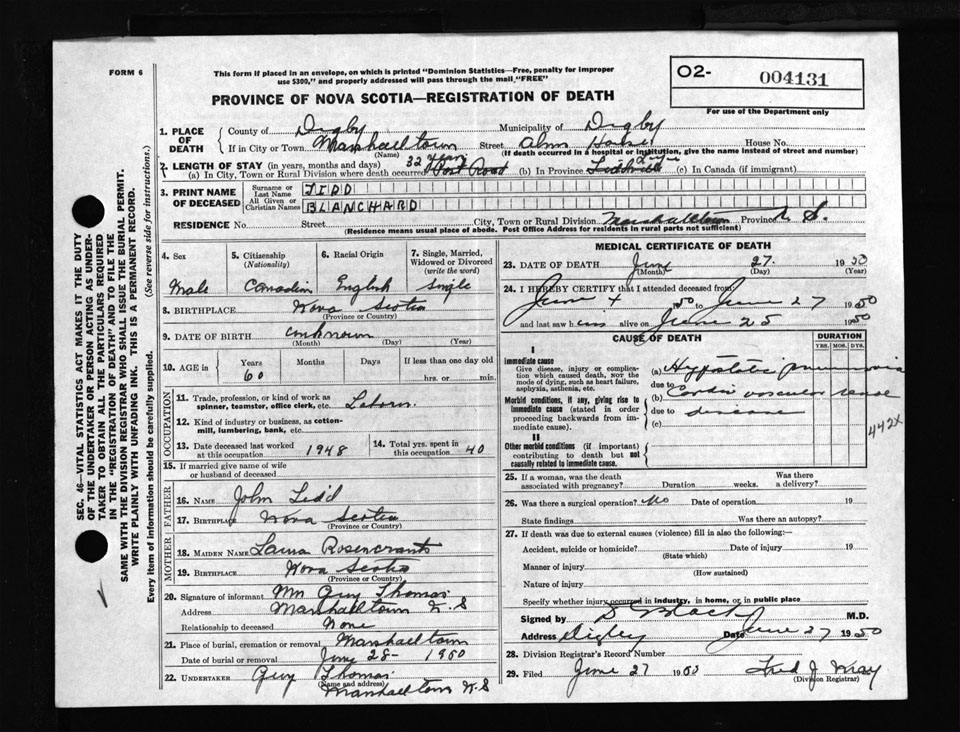 FORM 6
This form if placed in an envelope, on which is printed "Dominion Statistics—Free, penalty for improper
use $300," and properly addressed will pass through the mail "FREE"
O2- 004131
For use of the Department only
PROVINCE OF NOVA SCOTIA—REGISTRATION OF DEATH
1. PLACE OF DEATH
County of Digby Municipality of Digby
If in City or Town Marshalltown Street Alms House House No.
(Name) (If death occurred in a hospital or institution, give the name instead of street and number)
2. LENGTH OF STAY (in years, months and days) 32 years
(a) In City, Town or Rural Division where death occurred Post Road (b) In Province (c) In Canada (if immigrant)
3. PRINT NAME OF DECEASED
Surname or Last Name TIDD
All Given or Christian Names BLANCHARD
RESIDENCE No. Street City, Town or Rural Division Marshalltown Province N. S.
(Residence means usual place of abode. Post Office Address for residents in rural parts not sufficient)
4. Sex Male
5. Citizenship (Nationality) Canadian
6. Racial Origin English
7. Single, Married, Widowed or Divorced (write the word) Single
8. BIRTHPLACE Nova Scotia
(Province or Country)
9. DATE OF BIRTH unknown
(Month) (Day) (Year)
10. AGE in Years 60 Months Days If less than one day old
hrs. or min.
OCCUPATION
11. Trade, profession, or kind of work as spinner, teamster, office clerk, etc. Laborer
12. Kind of industry or business, as cotton-mill, lumbering, bank, etc.
13. Date deceased last worked at this occupation 1948
14. Total yrs. spent in this occupation 40
15. If married give name of wife or husband of deceased
FATHER
16. NAME John Tidd
17. BIRTHPLACE Nova Scotia
(Province or Country)
MOTHER
18. MAIDEN NAME Laura Rosencrants
19. BIRTHPLACE Nova Scotia
(Province or Country)
20. Signature of informant Mrs Guy Thomas
Address Marshalltown N.S
Relationship to deceased None
21. Place of burial, cremation or removal Marshalltown
Date of burial or removal June 28- 1950
22. UNDERTAKER Guy Thomas
(Name and address)
Marshalltown N.S
MEDICAL CERTIFICATE OF DEATH
23. DATE OF DEATH June 27. 1950
(Month) (Day) (Year)
24. I HEREBY CERTIFY that I attended deceased from
June 1950 to June 27 1950
and last saw him alive on June 25 1950
CAUSE OF DEATH DURATION
YRS. MOS. DYS.
I
Immediate cause
Give disease, injury or complication which caused death, NOT the mode of dying, such as heart failure, asphyxia, asthenia, etc.
(a) Hypostatic pneumonia
due to
Morbid conditions, if any, giving rise to immediate cause (stated in order proceeding backwards from immediate cause).
(b) Cardio vascular renal
due to disease
(c)
442X
II
Other morbid conditions (if important) contributing to death but not causally related to immediate cause.
25. If a woman, was the death associated with pregnancy? Duration weeks. Was there a delivery?
26. Was there a surgical operation? No Date of operation 19
State findings Was there an autopsy?
27. If death was due to external causes (violence) fill in also the following:—
Accident, suicide or homicide? Date of injury 19
(State which)
Manner of injury
(How sustained)
Nature of injury
Specify whether injury occurred in industry, in home, or in public place
Signed by Black M.D.
Address Digby Date June 27 1950
28. Division Registrar's Record Number
29. Filed June 27 1950 Fred J. Wray
(Division Registrar)
SEC. 46—VITAL STATISTICS ACT MAKES IT THE DUTY
OF THE UNDERTAKER OR PERSON ACTING AS UNDER-
TAKER TO OBTAIN ALL THE PARTICULARS REQUIRED
IN THE "REGISTRATION OF DEATH" AND TO FILE THE
SAME WITH THE DIVISION REGISTRAR WHO SHALL ISSUE THE BURIAL PERMIT.
WRITE PLAINLY WITH UNFADING INK. THIS IS A PERMANENT RECORD.
Every item of information should be carefully supplied. (See reverse side for instructions.)